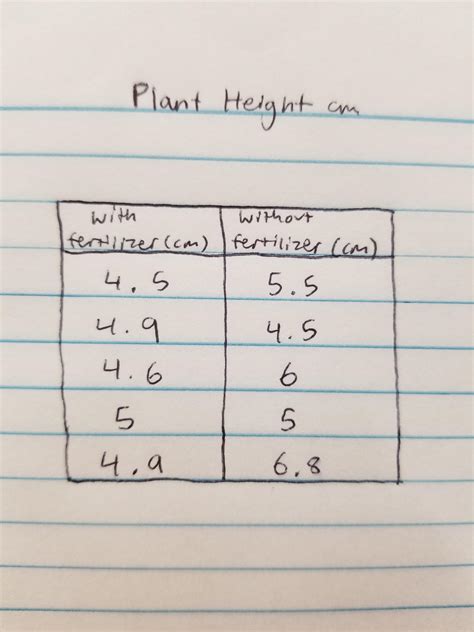 Plant Height cm
with without
fertilizer (cm) fertilizer (cm)
4.5 5.5
4.9 4.5
4.6 6
5 5
4.9 6.8